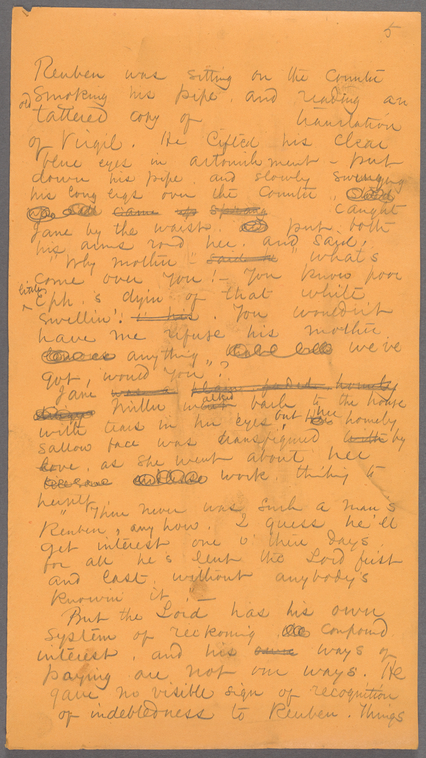 5
Reuben was sitting on the counter
smoking his pipe, and reading an
old
tattered copy of translation
of Virgil. He lifted his clear
blue eyes in astonishment - put
down his pipe, and slowly swinging
his long legs over the counter
came up caught
Jane by the waist, put both
his arms round her, and said,
"Why mother! said what's
come over you! - You know poor
little
Eph.'s dyin' of that white
swellin'. You wouldn't
have me refuse his mother
anything we've
got, would you?"
Jane was a plain faded homely
Miller walked back to the house
with tears in her eyes, but her homely
sallow face was transfigured with by
love, as she went about her
work, thinking to
herself,
"There never was such a man's
Reuben, any how. I guess he'll
get interest one o' these days.
for all he's lent the Lord first
and last, without anybody's
knowin' it. -
But the Lord has his own
system of reckoning compound
interest, and his ways of
paying are not our ways. He
gave no visible sign of recognition
of indebtedness to Reuben. Things